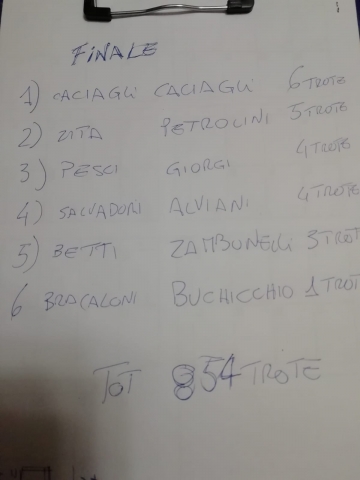 FINALE
1) CACIAGLI CACIAGLI 6 TROTE
2) ZITA PETROLINI 5 TROTE
3) PESCI GIORGI 4 TROTE
4) SALVADORI ALVIANI 4 TROTE
5) BETTI ZAMBUNELLI 3 TROT
6 BRACALONI BUCHICCHIO 1 TROT
TOT 854 TROTE